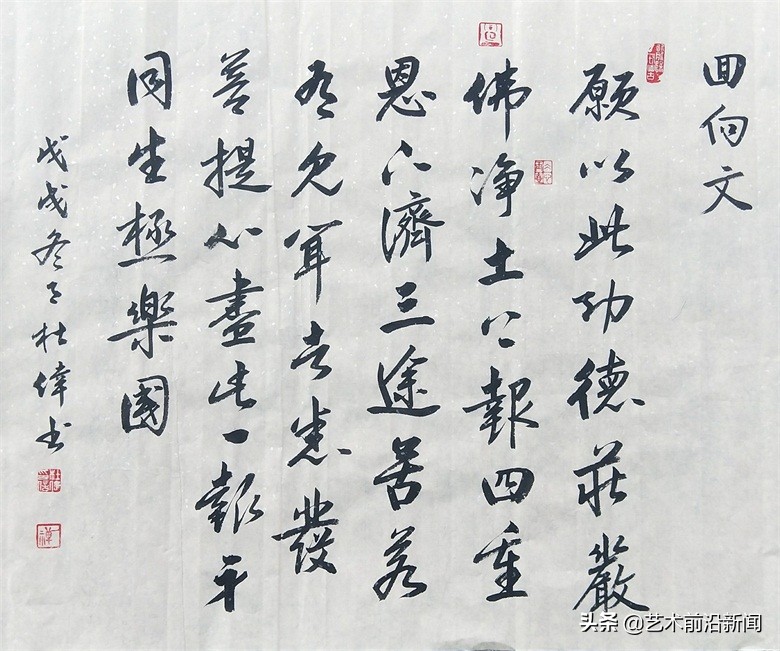 回向文
願以此功德莊嚴
佛淨土上報四重
恩下濟三途苦若
有見聞者悉發
菩提心盡此一報身
同生極樂國
戊戌冬月杜偉书
头条 @艺术前沿新闻